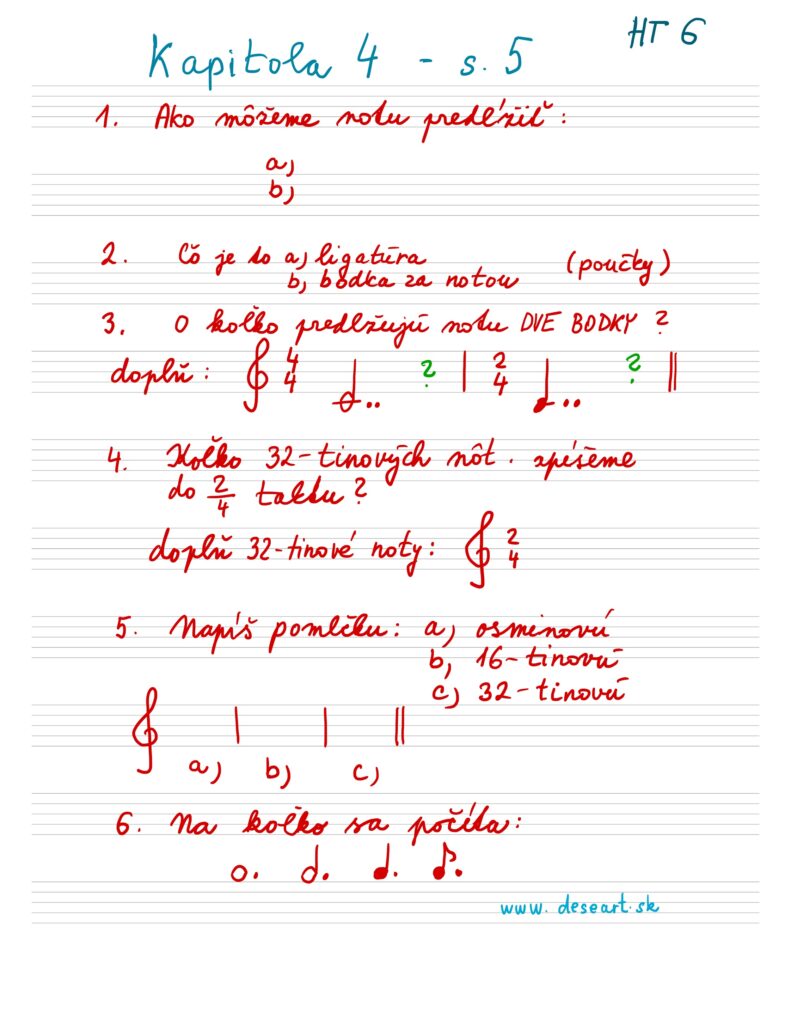 HT 6
Kapitola 4 - s. 5
1. Ako môžeme notu predĺžiť:
a)
b)
2. Čo je to a) ligatúra (poučky)
b) bodka za notou
3. O koľko predlžujú notu DVE BODKY ?
doplň: 4 4 ? 2 4 ?
4. Koľko 32-tinových nôt zpíšeme
do 2/4 taktu ?
doplň 32-tinové noty: 2 4
5. Napíš pomlčku: a) osminovú
b) 16-tinovú
c) 32-tinovú
a) b) c)
6. Na koľko sa počíta:
www.deseart.sk